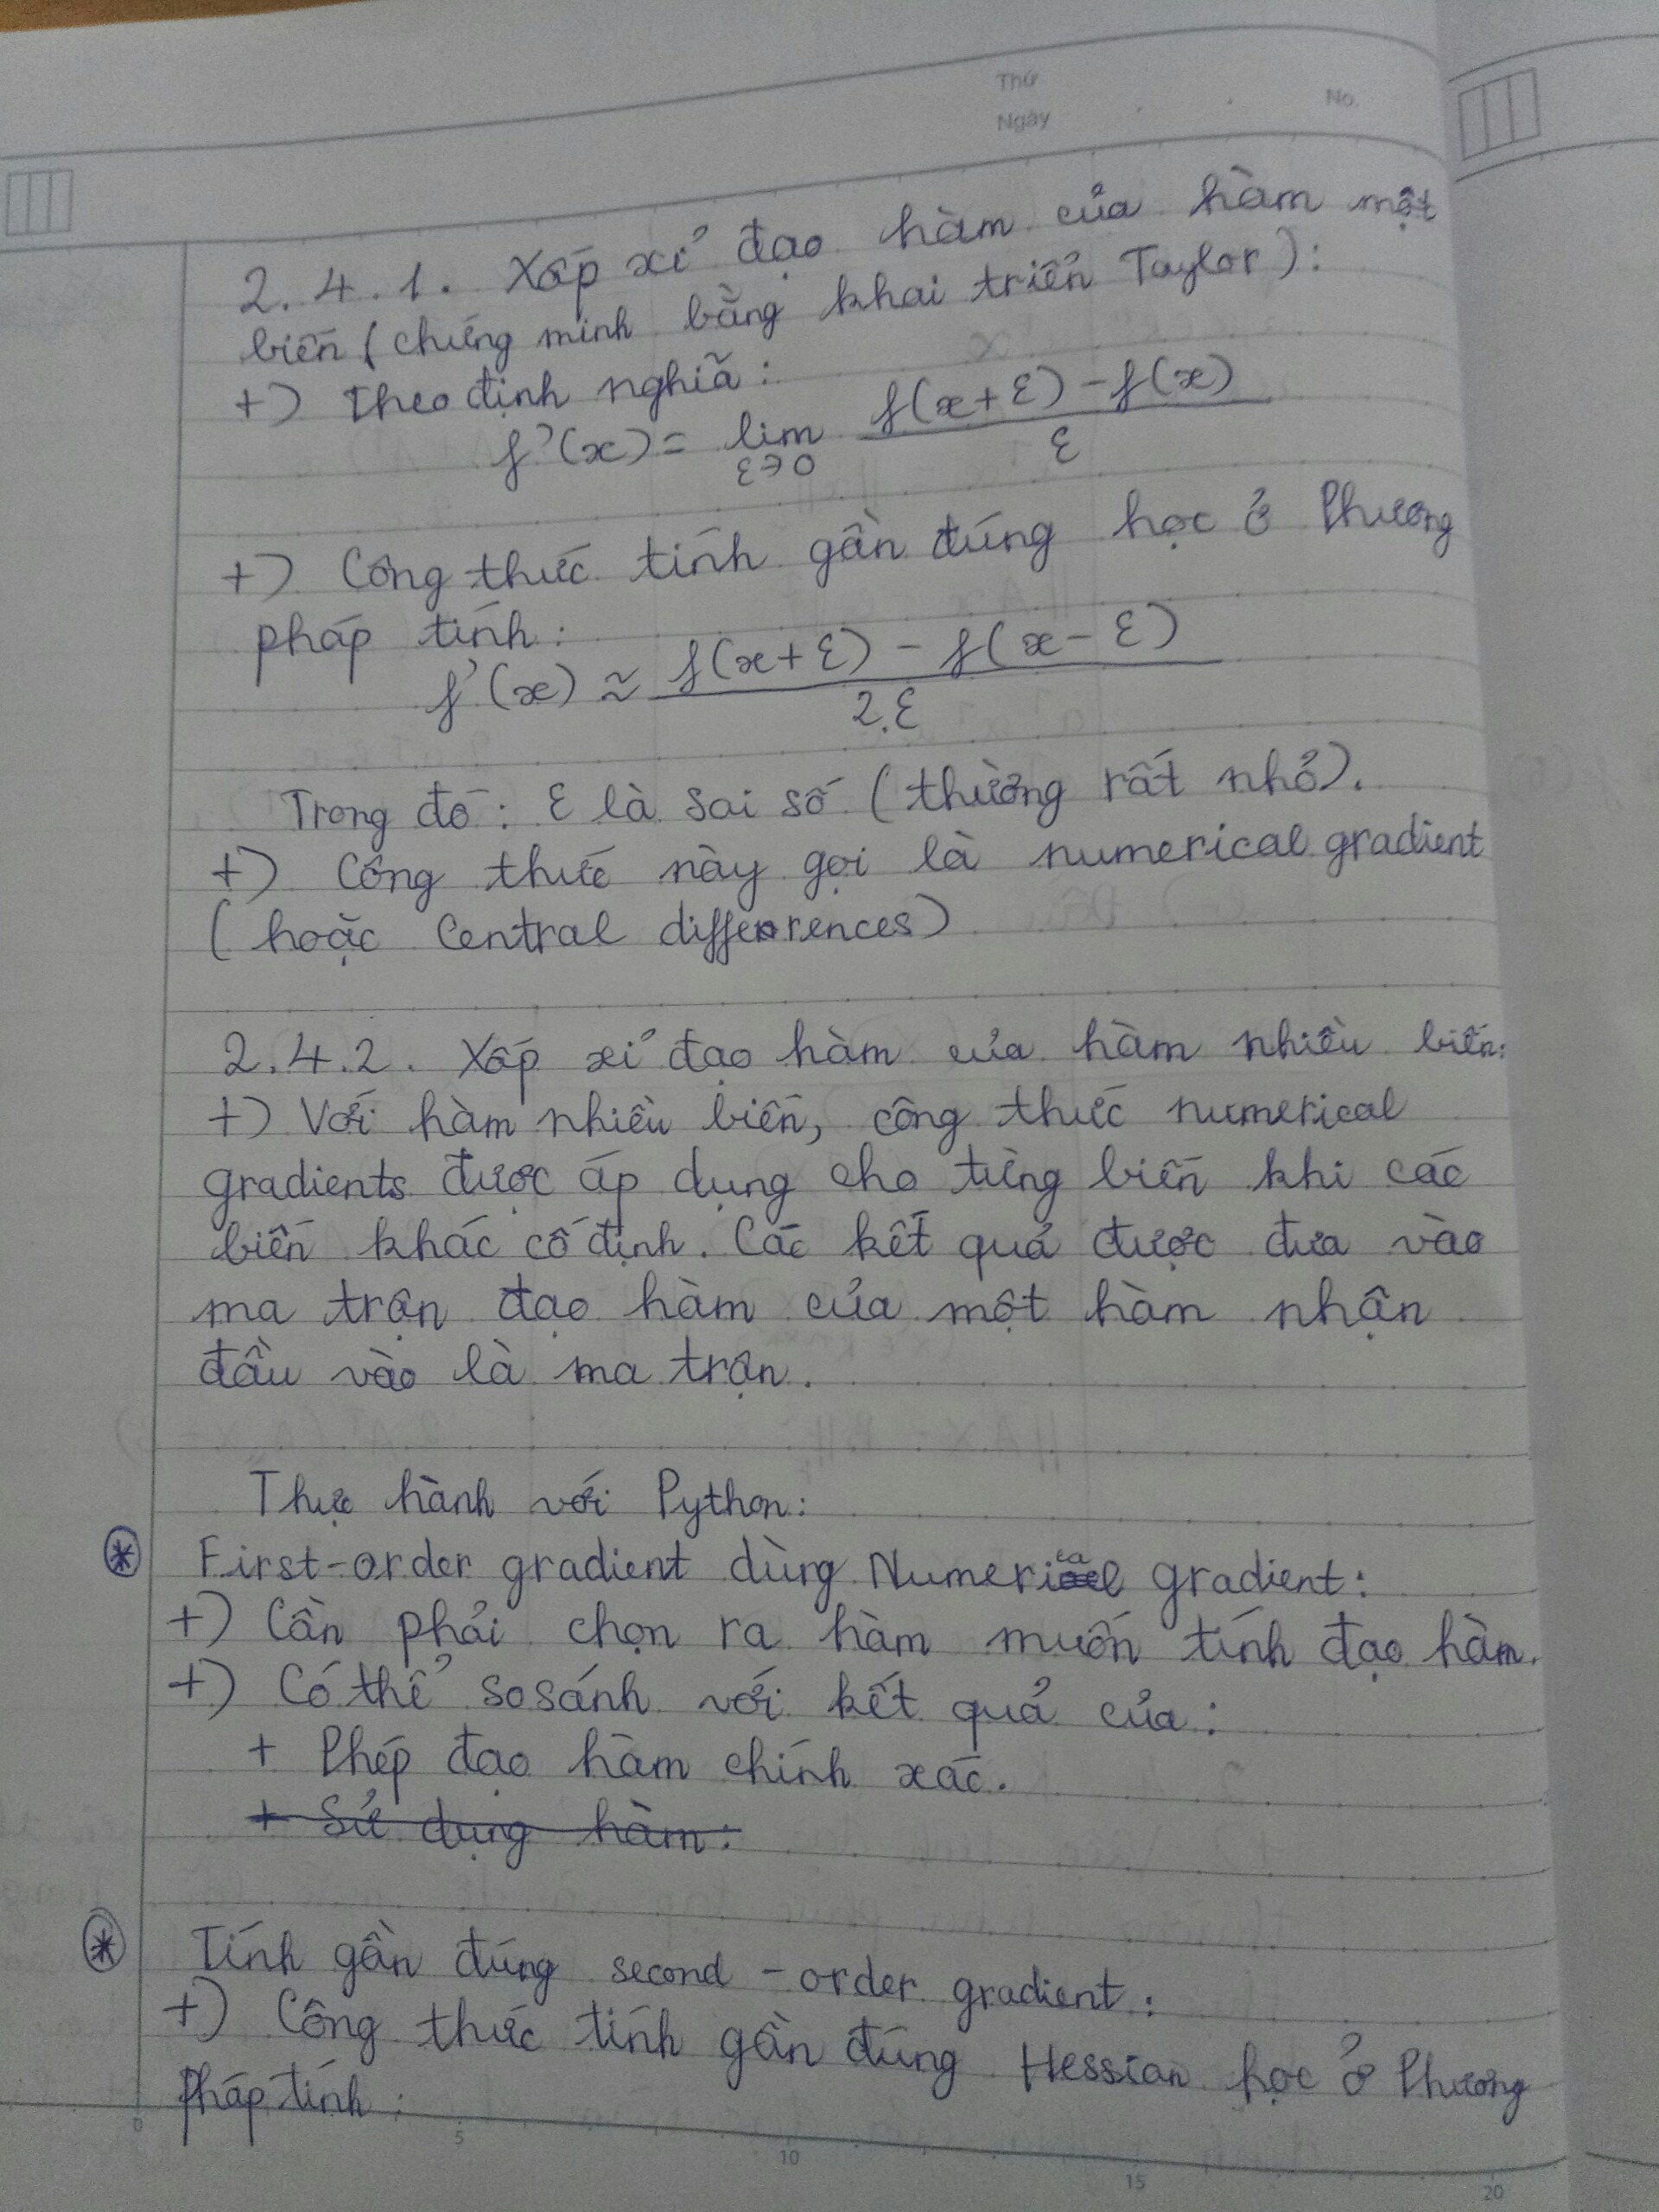 Thứ
Ngày
No.
2.4.1. Xấp xỉ đạo hàm của hàm một
biến (chứng minh bằng khai triển Taylor):
+) Theo định nghĩa:
f'(x) = lim f(x+ε) - f(x)
ε→0 ε
+) Công thức tính gần đúng học ở Phương
pháp tính:
f'(x) ≈ f(x+ε) - f(x-ε)
2.ε
Trong đó: ε là sai số (thường rất nhỏ).
+) Công thức này gọi là numerical gradient
(hoặc Central differences)
2.4.2. Xấp xỉ đạo hàm của hàm nhiều biến:
+) Với hàm nhiều biến, công thức numerical
gradients được áp dụng cho từng biến khi các
biến khác cố định. Các kết quả được đưa vào
ma trận đạo hàm của một hàm nhận
đầu vào là ma trận.
Thực hành với Python:
* First-order gradient dùng Numerical gradient:
+) Cần phải chọn ra hàm muốn tính đạo hàm.
+) Có thể so sánh với kết quả của:
+ Phép đạo hàm chính xác.
+ Sử dụng hàm:
* Tính gần đúng second-order gradient:
+) Công thức tính gần đúng Hessian học ở Phương
pháp tính:
0 5 10 15 20